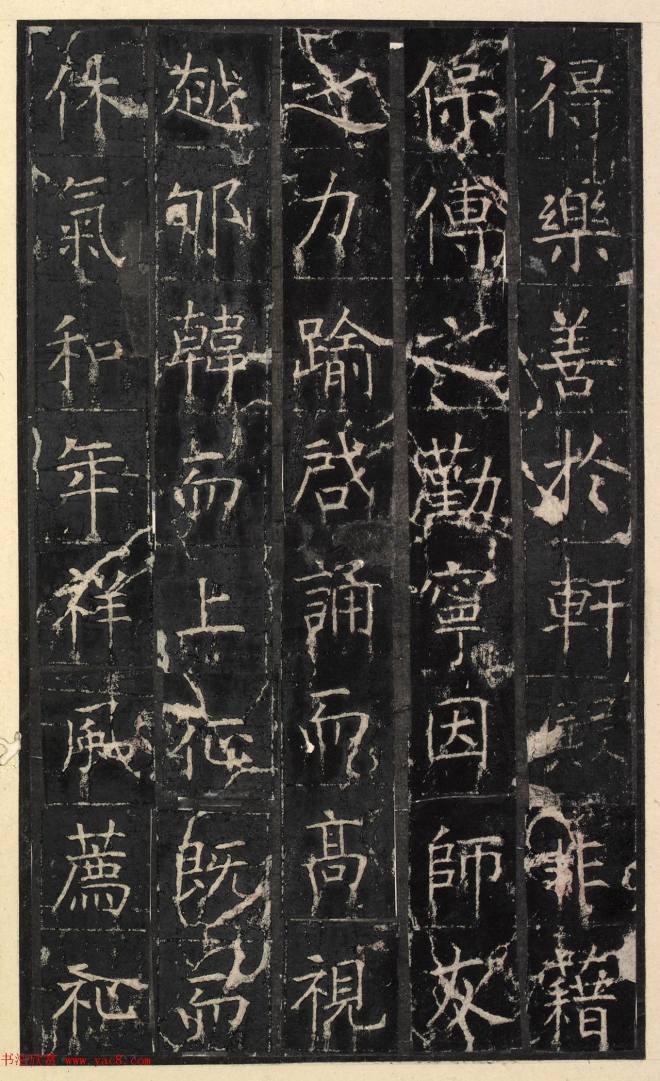 得樂善於軒殿非藉
保傅之勸寧因師友
之力踰啓誦而高視
越韓而上征既而
休氣和年祥風薦祉
书法欣赏 www.yac8.com